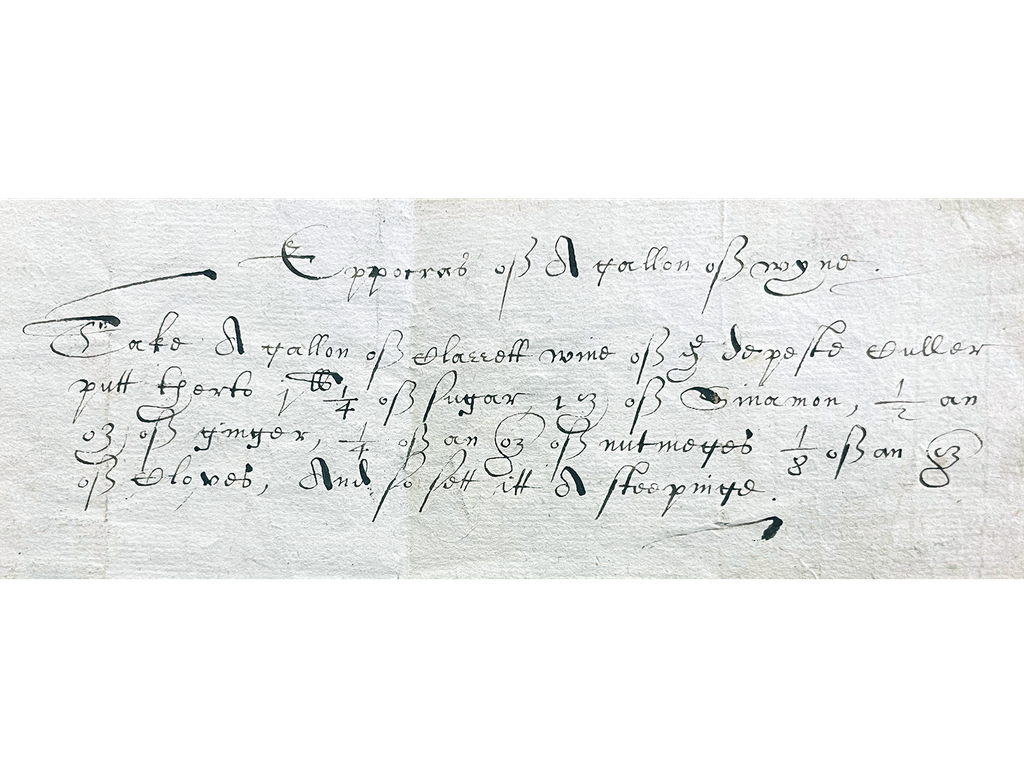 Eppocras off A gallon off wyne.
Take A gallon off Clarrett wine off ye depeste Culler
putt therto 1lb 1/4 off sugar, 1 oz, off Sinamon, 1/2 an
oz, off ginger, 1/4 off an oz off nutmeges 1/8 off an oz
off Cloves, And so sett itt A steepinge.